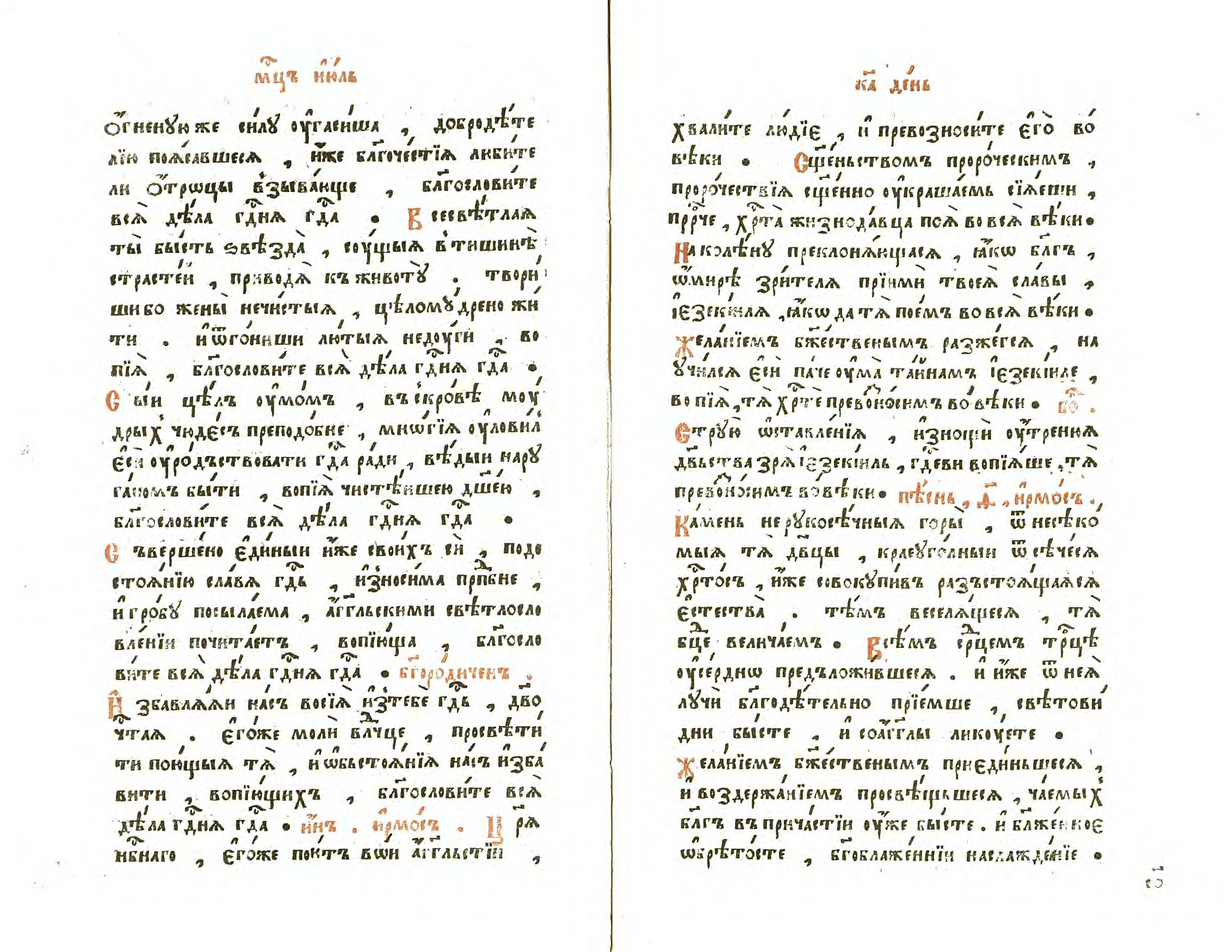 мⷭ҇цъ ию́ль
Ѻ҆́гненую же си́лу ᲂу҆гаси́ша , добродѣ́те
лїю поѧ́савшесѧ , и҆́же бл҃гоче́стїѧ люби́те
ли ѻ҆́троцы взыва́юще , бл҃гослови́те
всѧ̀ дѣ́ла гдⷭ҇нѧ гдⷭ҇а . Всесвѣ́тлаѧ
ты̀ бы́сть ѕвѣзда̀ , сᲂу́щыѧ в̾тишинѣ̀
страсте́й , приводѧ̀ къ животꙋ̀ . твори́
ши бо жены̀ нечи́стыѧ , цѣломꙋ́дрено жи́
ти . и҆ ѿго́ниши лю́тыѧ недᲂу́ги , во
пїѧ̀ , бл҃гослови́те всѧ̀ дѣ́ла гдⷭ҇нѧ гдⷭ҇а .
Сы́и цѣ́лъ ᲂу҆мо́мъ , въ скро́вѣ моу́
дрыхъ чюде́съ преподо́бне , мно́гїѧ ᲂу҆лови́лъ
є҆сѝ ᲂу҆ро́дъствовати гдⷭ҇а ра́ди , вѣ́дыи нару
га́номъ бы́ти , вопїѧ̀ чистѣ́ишею дш҃е́ю ,
бл҃гослови́те всѧ̀ дѣ́ла гдⷭ҇нѧ гдⷭ҇а .
Съверше́но є҆ди́ныи и҆́же свои́хъ си̏ , подо
стоѧ́нїю сла́вѧ гдⷭ҇ь , и҆зноси́ма прпⷣбне ,
и҆ гро́бу посыла́ема , а҆́гг҃льскими свѣтлосло
вле́нїи почита́етъ , вопїю́ща , бл҃госло
ви́те всѧ̀ дѣ́ла гдⷭ҇нѧ гдⷭ҇а . бг҃оро́диченъ .
И҆збавлѧ́ѧи на́съ возсїѧ̀ и҆зтебѐ гдⷭ҇ь , дв҃о
чтⷭ҇аѧ . є҆го́же молѝ влⷣчце , просвѣти́
ти пою́щыѧ тѧ̀ , и҆ ѡ҆бьстоѧ́нїѧ на́съ и҆зба́
вити , вопїю́щихъ , бл҃гослови́те всѧ̀
дѣ́ла гдⷭ҇нѧ гдⷭ҇а . и҆́нъ . и҆рмо́съ . Царѧ̀
нбⷭ҇наго , є҆го́же пою́тъ во́и а҆́гг҃льстїи ,
к҃а де́нь
хвали́те лю́дїє , и҆ превозноси́те є҆го̀ во́
вѣки . Сщ҃е́ньствомъ проро́ческимъ ,
проро́чествїѧ сщ҃е́нно ᲂу҆краша́емь сїѧ́еши ,
прⷪ҇рче , хрⷭ҇та̀ жизнода́вца поѧ̀ во всѧ̀ вѣ́ки .
На колѣ́ну преклонѧ́ющасѧ , ꙗ҆́кѡ бл҃гъ ,
ѡ҆ мирѣ̀ зри́телѧ прїимѝ твоеѧ̀ сла́вы ,
і҆езекі́илѧ , ꙗ҆́кѡ да тѧ̀ пое́мъ во всѧ̀ вѣ́ки .
Жела́нїемъ бж҃е́ственымъ разже́гсѧ , на
ꙋчи́лсѧ є҆сѝ па́че ᲂу҆ма̀ та́инамъ і҆езекі́иле ,
вопїѧ̀ , тѧ̀ хрⷭ҇тѐ превозно́симъ во́ вѣки . бо҃ .
Струю̀ ѡ҆ставле́нїѧ , и҆зноща́и ᲂу҆́тренѧѧ
двь҃ства зрѧ̀ і҆езекі́иль , гдⷭ҇еви вопїѧ́ше , тѧ̀
превозно́симъ во́вѣки . пѣ́снь , ѳ҃ , и҆рмо́съ .
Ка́мень нерукосѣ́чныи горы̀ , ѿ несѣко́
мыѧ тѧ̀ дв҃цы , краеуго́лныи ѿсѣче́сѧ
хрⷭ҇то́съ , и҆́же совокупи́въ разъстоѧ́щаѧсѧ
є҆стества̀ . тѣ́мъ веселѧ́щесѧ , тѧ̀
бц҃е велича́емъ . Всѣ́мъ срⷣцемъ трⷪ҇цѣ
ᲂу҆се́рднѡ предъложи́вшесѧ . и҆ и҆́же ѿ неѧ̀
лучѝ бл҃года́тельно прїе́мше , свѣ́тови
дни бы́сте , и҆ со а҆́гг҃лы ликᲂу́ете .
Жела́нїемъ бж҃е́ственымъ приєди́ньшесѧ ,
и҆ воздержа́нїемъ просвѣ́щьшесѧ , ча́емыхъ
бл҃гъ въ прича́стїи ᲂу҆́же бы́сте . и҆ блаже́нноє
ѡ҆брѣто́сте , бг҃облаже́ннїи наслажде́нїе .